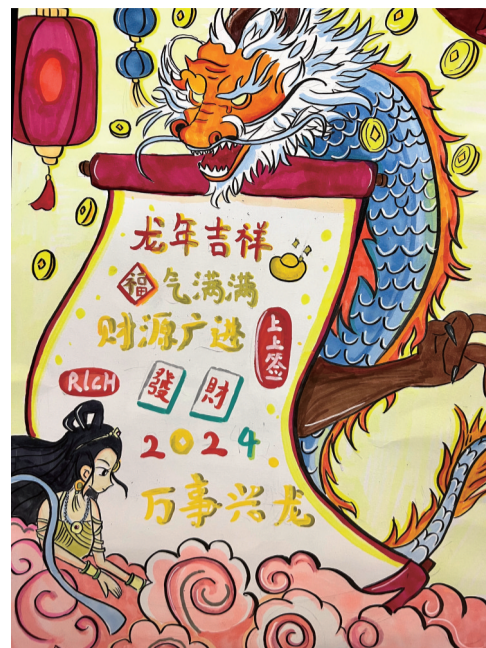 龙年吉祥
福气满满
财源广进
上上签
RICH
發財
2024
万事兴龙